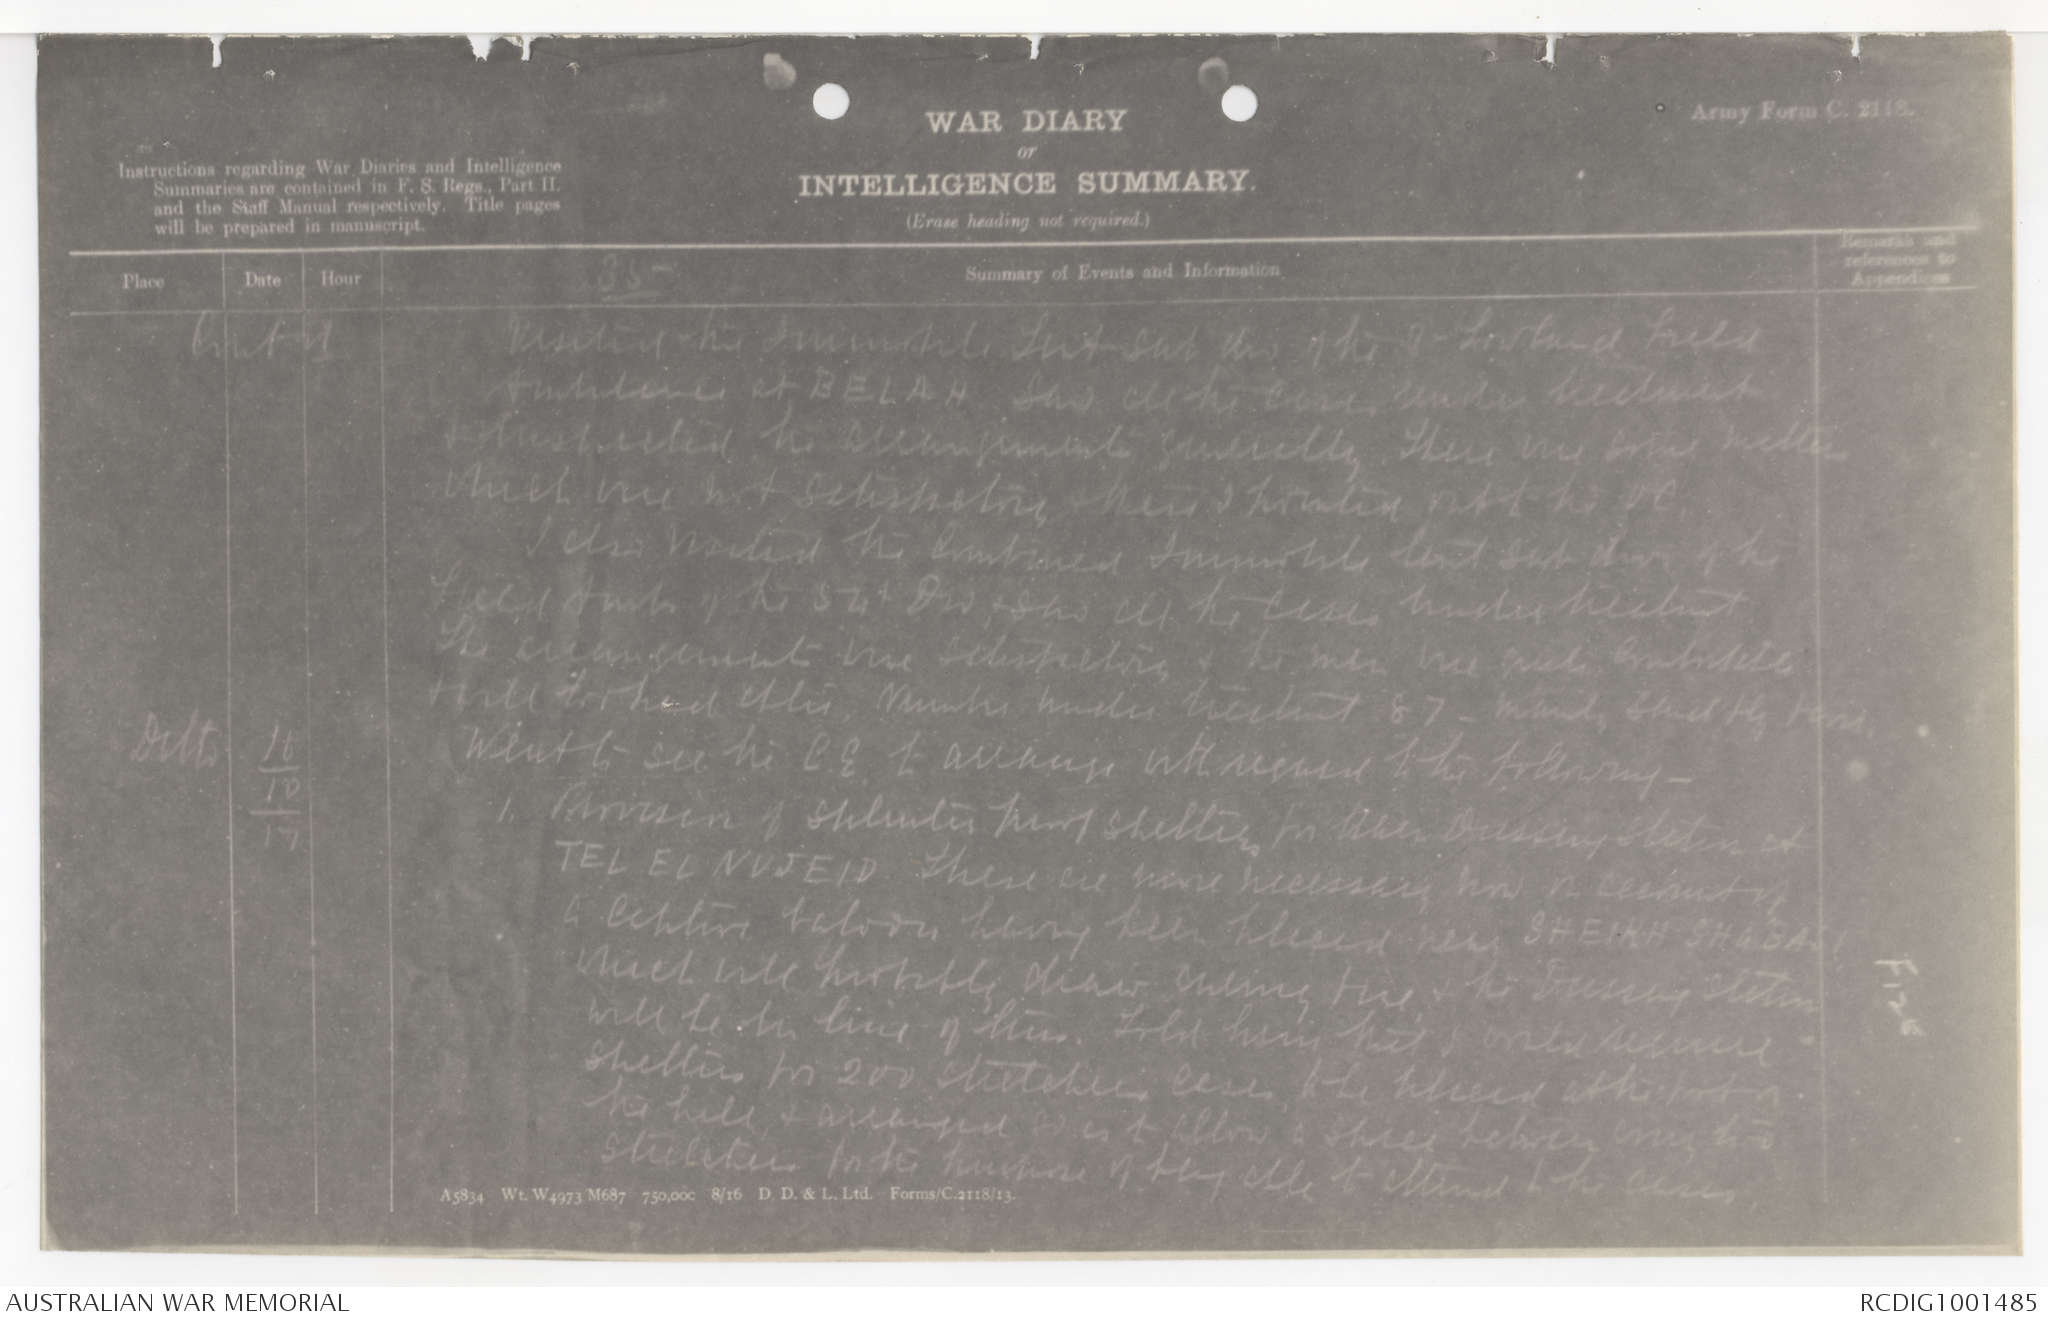 WAR DIARY
or
INTELLIGENCE SUMMARY.
(Erase heading not required.)
Army Form C. 2118.
Instructions regarding War Diaries and Intelligence
Summaries are contained in F. S. Regs., Part II.
and the Staff Manual respectively. Title pages
will be prepared in manuscript.
Place
Date
Hour
35
Summary of Events and Information
Remarks and
references to
Appendices
Contd
Visited the Immobile Tent Sub div of the Lowland Field
Ambulance at BELAH. Saw all the cases under treatment
& inspected the arrangements generally. There were some matters
which were not satisfactory & these I pointed out to the OC.
I also visited the Combined Immobile tent sub divs of the
Field Ambs of the 54th Div, & saw all the cases under treatment
The arrangements were satisfactory & the men were quite comfortable
& well looked after. Number under treatment 87 - mainly Sand fly fever.
Ditto
10
10
17
Went to see the C.E. to arrange with regard to the following -
1. Provision of splinter proof shelters for Main Dressing Station at
TEL EL NUJEID. These are more necessary now on account of
a captive baloon having been placed near SHEIKH SHABASI
which will probably draw enemy fire, & the Dressing Station
will be in line of this. Told him that I would require
shelters for 200 stretcher cases, to be placed at the foot of
the hill, & arranged so as to allow a space between every two
stretchers for the purpose of being able to attend to the cases.
A5834 Wt. W4973 M687 750,000 8/16 D. D. & L. Ltd. Forms/C.2118/13.
AUSTRALIAN WAR MEMORIAL
RCDIG1001485